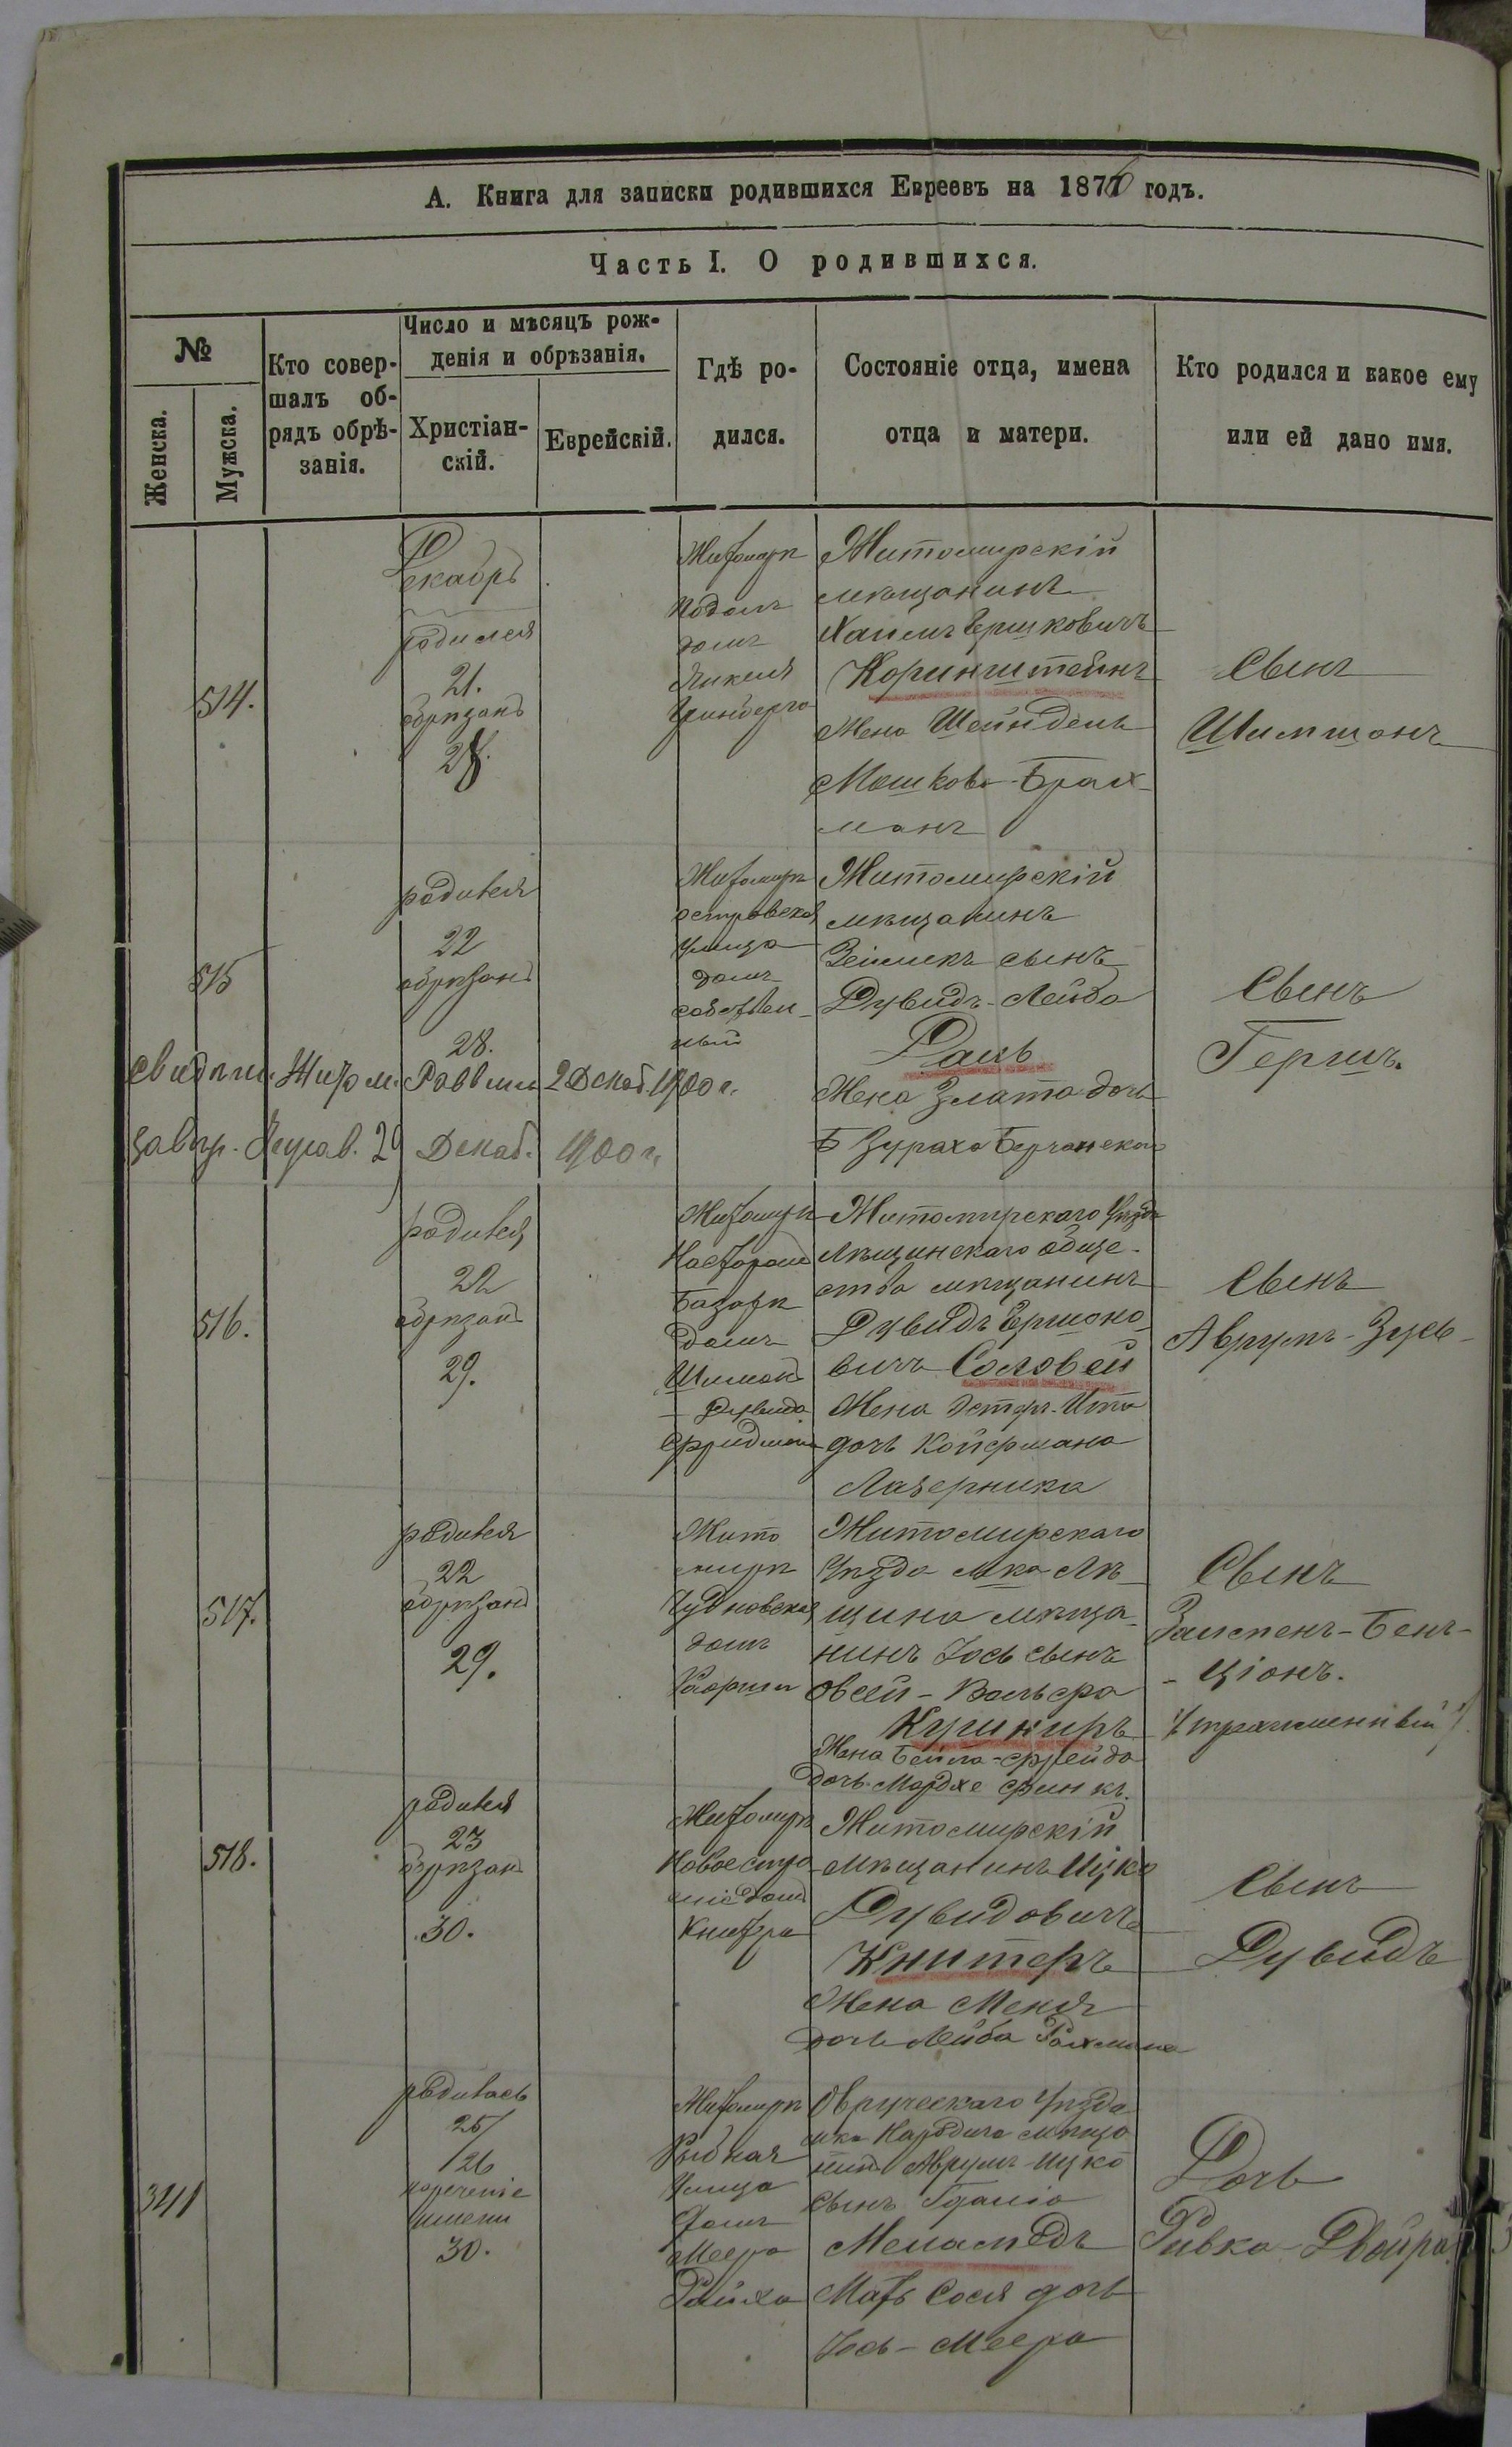 А. Книга для записки родившихся Евреевъ на 1876 годъ.
Часть I. О родившихся.
№
Женска.
Мужска.
Кто совер-
шалъ об-
рядъ обрѣ-
занія.
Число и мѣсяцъ рож-
денія и обрѣзанія.
Христіан-
скій.
Еврейскій.
Гдѣ ро-
дился.
Состояніе отца, имена
отца и матери.
Кто родился и какое ему
или ей дано имя.
514.
Декабрь
родился
21.
обрѣзанъ
28.
Житомирѣ
Подолъ
домъ
Янкеля
Гринберга
Житомирскій
мѣщанинъ
Хаимъ Ершковичъ
Коринштейнъ
Жена Шейндель
Мошкова Брах-
манъ
Сынъ
Шимшонъ
515
родился
22
обрѣзанъ
28.
Житомирѣ
островская
улица
домъ
собствен-
ный
Житомирскій
мѣщанинъ
Зейликъ сынъ
Дувидъ-Лейба
Ракъ
Жена Злата дочь
Сынъ
Гершъ.
Свидѣт. Житом. Раввин. 2 Декаб. 1900 г.
Декаб. 1900 г.
516.
родился
22
обрѣзанъ
29.
Житомирѣ
На старомъ
базарѣ
домъ
Шимона
Дувида
Фридмана
Житомирскаго Уѣзда
Лѣщинскаго обще-
ства мѣщанинъ
Дувидъ Ершоно-
вичъ Соловей
Жена Эстеръ-Ита
дочь Койфмана
Лазерника
Сынъ
Аврумъ-Зусь
517.
родился
22
обрѣзанъ
29.
Жито
мирѣ
Чудновская
домъ
Житомирскаго
Уѣзда мка Лѣ-
щина мѣща-
нинъ Іось сынъ
Овсей-Вольфа
Кушниръ
Жена Бейла-Фрейда
дочь Мордхе Финкъ.
Сынъ
Залменъ-Бенъ-
-Ціонъ.
518.
родился
23
обрѣзанъ
30.
Житомирѣ
Новое стро
еніе домъ
Книтра
Житомирскій
мѣщанинъ Ицко
Дувидовичъ
Книтеръ
Жена Меня
дочь Лейба Рахмана
Сынъ
Дувидъ
341
родилась
25/
/26
нареченіе
имени
30.
Житомирѣ
Рыбная
Улица
домъ
Меера
Райха
Овручскаго Уѣзда
мка Народича мѣща
нинъ Аврумъ-Ицко
сынъ Гдаліо
Меламедъ
Мать Сося дочь
Іось-Меера
Дочь
Ривка-Двойра